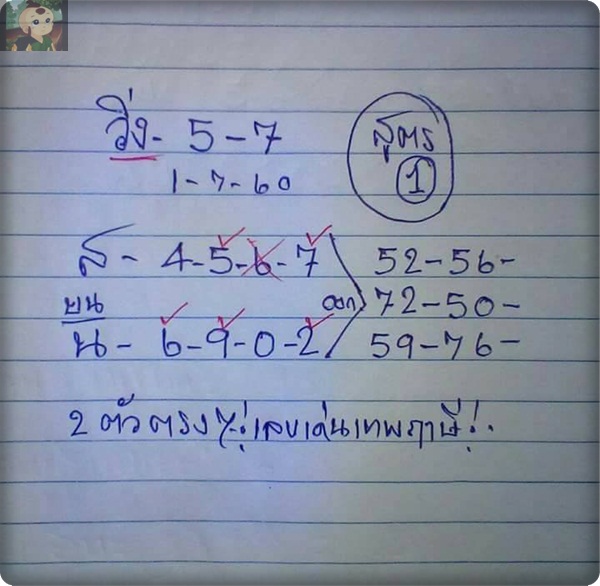 วิ่ง - 5 - 7
สูตร 1
1 - 7 - 60
ส - 4 - 5 - 6 - 7
52 - 56 -
บน
ออก 72 - 50 -
น - 6 - 9 - 0 - 2
59 - 76 -
2 ตัวตรงๆ! เลขเด่นเทพฤาษี!.